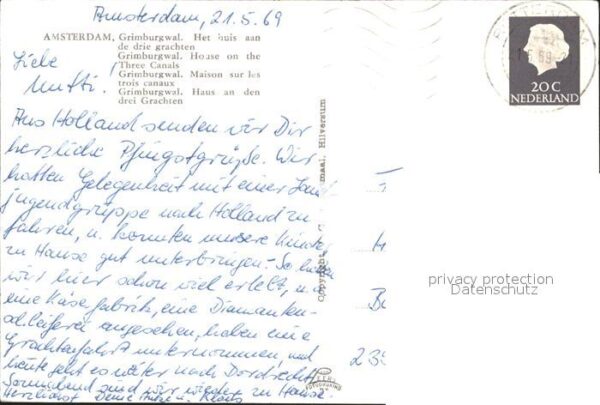 Amsterdam, 21.5.69
AMSTERDAM, Grimburgwal. Het huis aan
de drie grachten
Grimburgwal. House on the
Three Canals
Grimburgwal. Maison sur les
trois canaux
Grimburgwal. Haus an den
drei Grachten
Liebe
Mutti!
Aus Holland senden wir Dir
herzliche Pfingstgrüße. Wir
hatten Gelegenheit mit einer Land
jugendgruppe nach Holland zu
fahren, u. konnten unsere Kinder
zu Hause gut unterbringen. So haben
wir hier schon viel erlebt, u.a.
eine Käsefabrik, eine Diamanten-
schleiferei angesehen, haben eine
Grachtenfahrt unternommen, und
heute geht es weiter nach Dordrecht.
Sonnabend sind wir wieder zu Hause.
Herzlichst Deine u. Klaus
Copyright
maal, Hilversum
20 C
NEDERLAND
H
B
239
privacy protection
Datenschutz